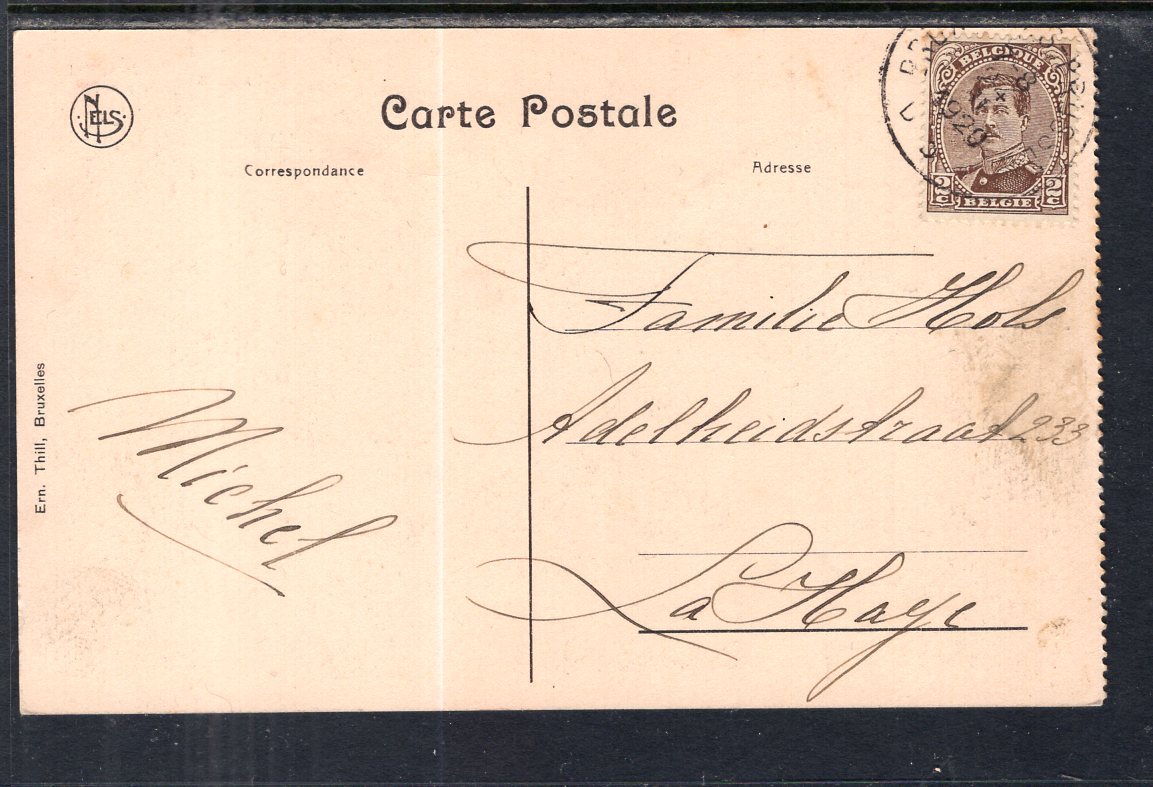 NELS
Carte Postale
Correspondance
Adresse
BELGIQUE
2c 2c
BELGIË
Familie Hols
Adelheidstraat 233
La Haye
Michel
Ern. Thill, Bruxelles